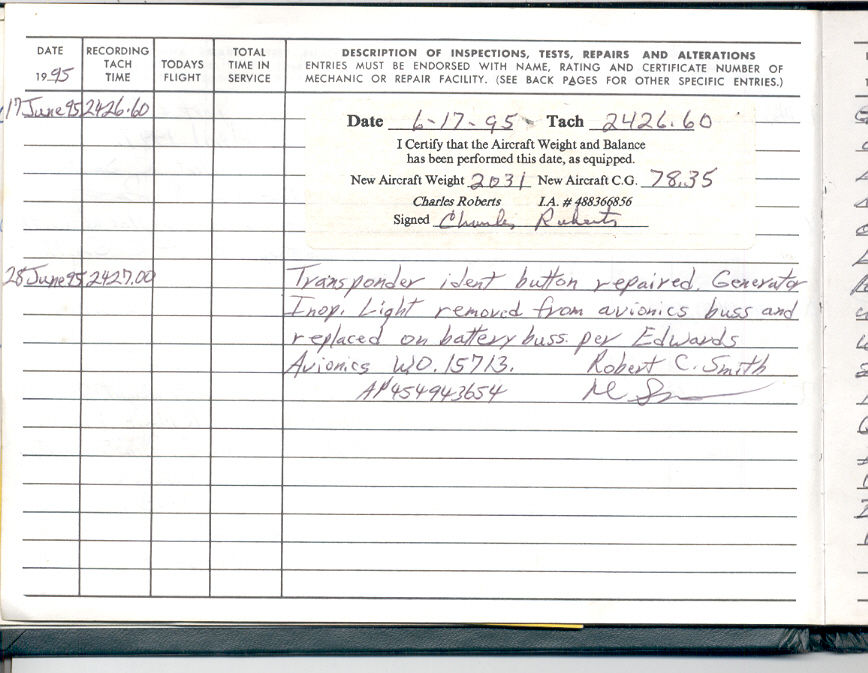 DATE
1995
RECORDING
TACH
TIME
TODAYS
FLIGHT
TOTAL
TIME IN
SERVICE
DESCRIPTION OF INSPECTIONS, TESTS, REPAIRS AND ALTERATIONS
ENTRIES MUST BE ENDORSED WITH NAME, RATING AND CERTIFICATE NUMBER OF
MECHANIC OR REPAIR FACILITY. (SEE BACK PAGES FOR OTHER SPECIFIC ENTRIES.)
17 June 95 2426.60
Date 6-17-95 Tach 2426.60
I Certify that the Aircraft Weight and Balance
has been performed this date, as equipped.
New Aircraft Weight 2031 New Aircraft C.G. 78.35
Charles Roberts I.A. # 488366856
Signed Charles Roberts
28 June 95 2427.00 Transponder ident button repaired. Generator
Inop. Light removed from avionics buss and
replaced on battery buss. per Edwards
Avionics WO. 15713. Robert C. Smith
AP 454943654